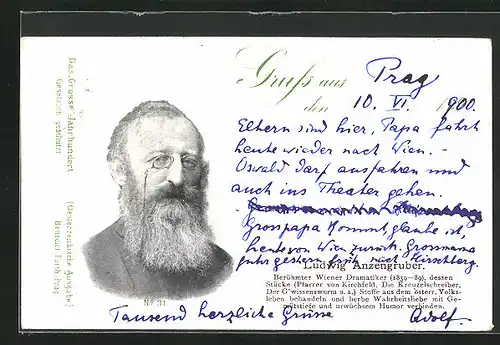 Das Grosse Jahrhundert
Gesetzlich geschützt
(Oesterreichische Ausgabe)
No 31
Gruß aus Prag
den 10. VI. 1900.
Eltern sind hier, Papa fährt
heute wieder nach Wien. –
Oswald darf ausfahren und
auch ins Theater gehen.
Grosspapa kommt, glaube ich,
heute von Wien zurück. Grossmama
gestern früh nach Hirschberg.
Ludwig Anzengruber.
Berühmter Wiener Dramatiker (1839–89), dessen
Stücke (Pfarrer von Kirchfeld, Die Kreuzelschreiber,
Der G'wissenswurm u. a.) Stoffe aus dem österr. Volks-
leben behandeln und herbe Wahrheitsliebe mit Ge-
mütstiefe und urwüchsem Humor verbinden.
Tausend herzliche Grüsse Adolf.